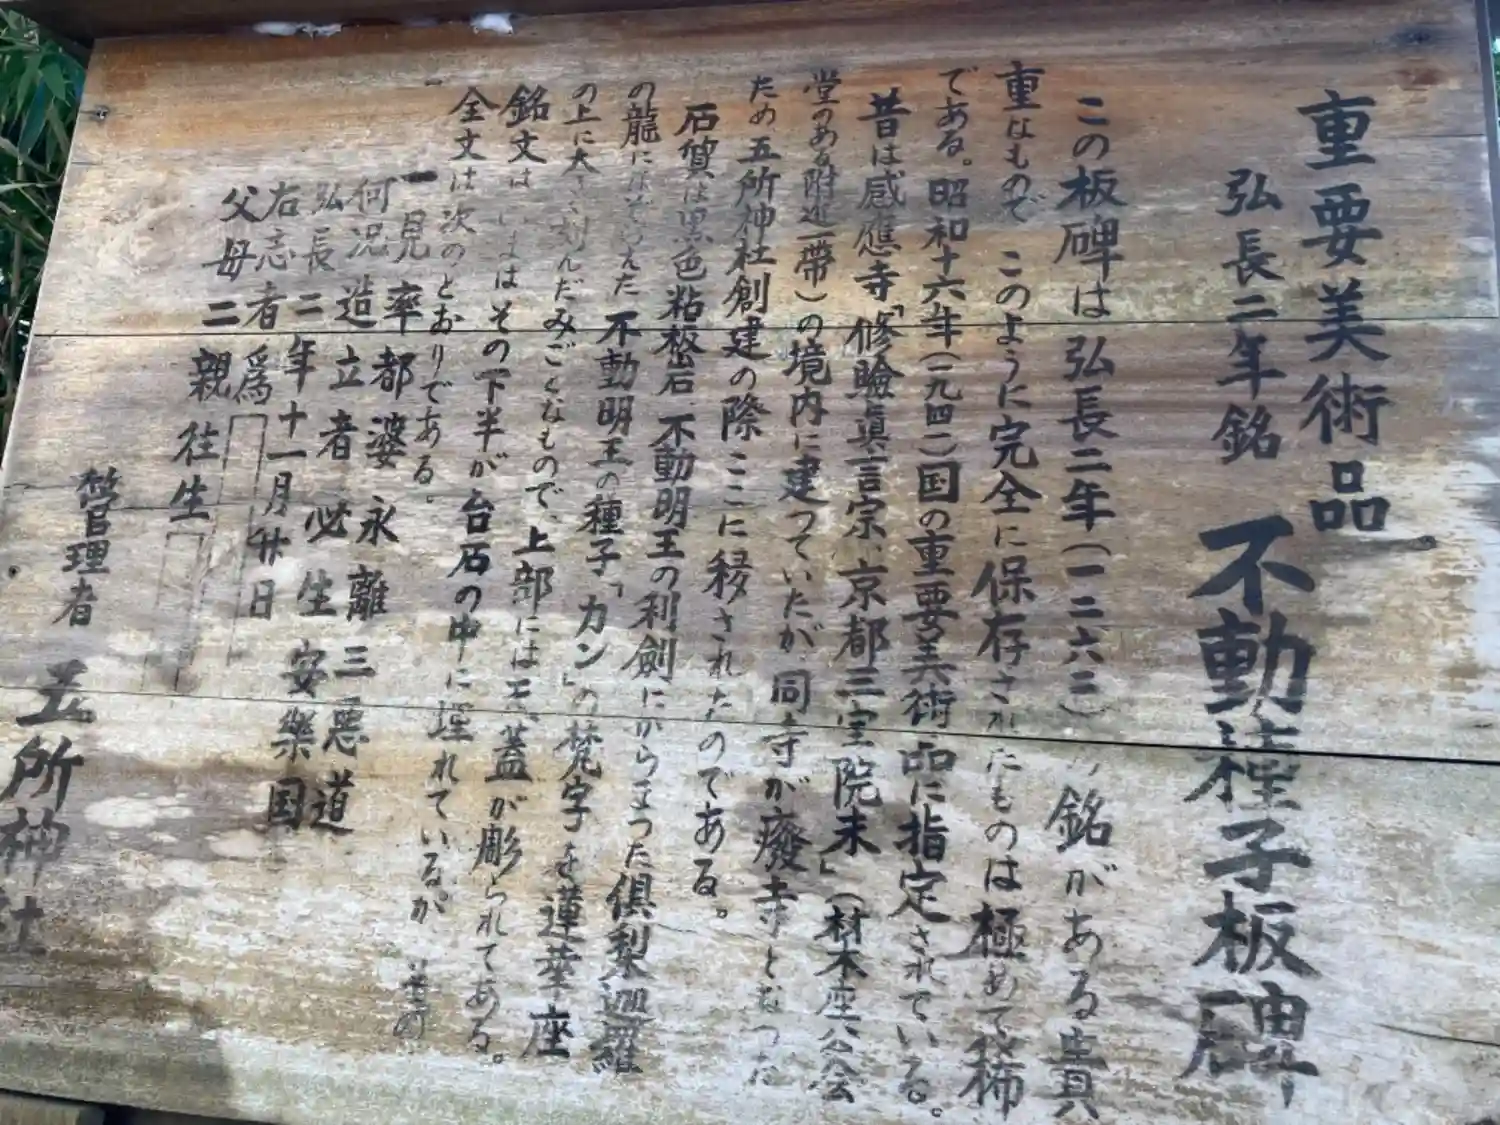 重要美術品
弘長二年銘 不動種子板碑
この板碑は弘長二年(一二六三)の銘がある貴
重なもので このように完全に保存されたものは極めて稀
である。昭和十六年(一九四一)国の重要美術品に指定されている。
昔は感應寺「修験眞言宗、京都三宝院末」(材木座公会
堂のある附近一帯)の境内に建っていたが、同寺が廃寺となった
ため五所神社創建の際ここに移されたのである。
石質は黒色粘板岩 不動明王の利劍にからまった俱梨迦羅
の龍になぞらえた 不動明王の種子「カン」の梵字を蓮華座
の上に大きく刻んだみごとなもので、上部には天蓋が彫られてある。
銘文は いまはその下半が台石の中に埋れているが 昔の
全文は次のとおりである。
一見率都婆 永離三悪道
何況造立者 必生安樂国
弘長二年十一月廿日
右志者爲
父母二親往生
管理者 五所神社